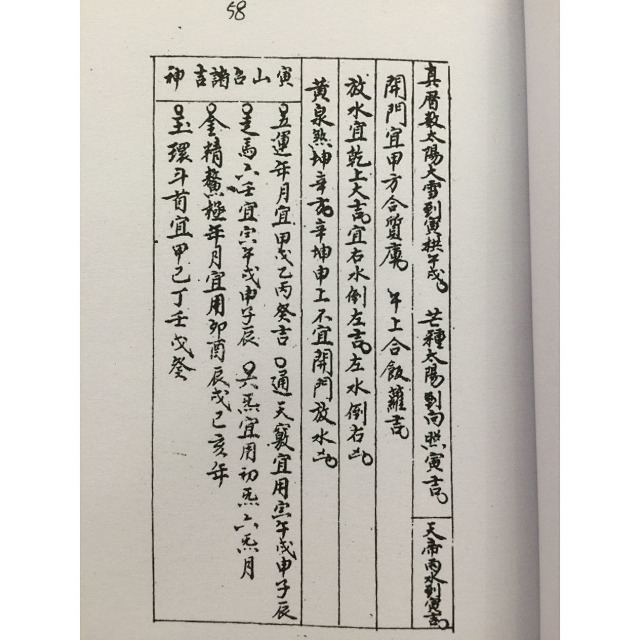 58
真曆数太陽大雪到寅拱午戌。 芒種太陽到向照寅吉。
天帝雨水到寅吉
開門宜甲方合質庫 午上合飯蘿吉
放水宜乾上大吉。宜右水倒左吉。左水倒右凶。
黄泉煞坤辛亥。辛坤申上不宜開門放水凶。
寅山召諸吉神
五運年月宜甲戌乙丙癸吉 通天竅宜用寅午戌申子辰
走馬六壬宜寅午戌申子辰 六炁宜用初炁六炁月
金精鰲極年月宜用卯酉辰戌己亥年
玉環斗首宜甲己丁壬戊癸